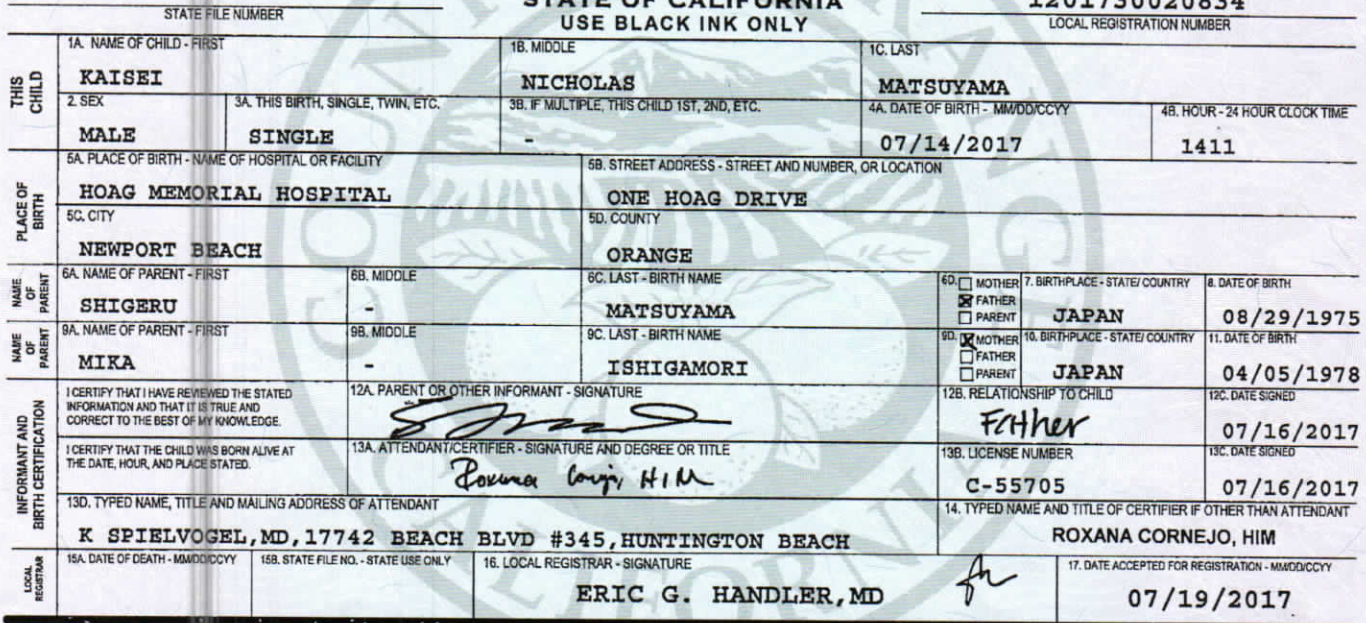 STATE OF CALIFORNIA
1201730020834
STATE FILE NUMBER
USE BLACK INK ONLY
LOCAL REGISTRATION NUMBER
THIS CHILD
1A. NAME OF CHILD - FIRST
1B. MIDDLE
1C. LAST
KAISEI
NICHOLAS
MATSUYAMA
2. SEX
3A. THIS BIRTH, SINGLE, TWIN, ETC.
3B. IF MULTIPLE, THIS CHILD 1ST, 2ND, ETC.
4A. DATE OF BIRTH - MM/DD/CCYY
4B. HOUR - 24 HOUR CLOCK TIME
MALE
SINGLE
-
07/14/2017
1411
PLACE OF BIRTH
5A. PLACE OF BIRTH - NAME OF HOSPITAL OR FACILITY
5B. STREET ADDRESS - STREET AND NUMBER, OR LOCATION
HOAG MEMORIAL HOSPITAL
ONE HOAG DRIVE
5C. CITY
5D. COUNTY
NEWPORT BEACH
ORANGE
NAME OF PARENT
6A. NAME OF PARENT - FIRST
6B. MIDDLE
6C. LAST - BIRTH NAME
6D. MOTHER
FATHER
PARENT
7. BIRTHPLACE - STATE/ COUNTRY
8. DATE OF BIRTH
SHIGERU
-
MATSUYAMA
JAPAN
08/29/1975
NAME OF PARENT
9A. NAME OF PARENT - FIRST
9B. MIDDLE
9C. LAST - BIRTH NAME
9D. MOTHER
FATHER
PARENT
10. BIRTHPLACE - STATE/ COUNTRY
11. DATE OF BIRTH
MIKA
-
ISHIGAMORI
JAPAN
04/05/1978
INFORMANT AND BIRTH CERTIFICATION
I CERTIFY THAT I HAVE REVIEWED THE STATED
INFORMATION AND THAT IT IS TRUE AND
CORRECT TO THE BEST OF MY KNOWLEDGE.
12A. PARENT OR OTHER INFORMANT - SIGNATURE
12B. RELATIONSHIP TO CHILD
Father
12C. DATE SIGNED
07/16/2017
I CERTIFY THAT THE CHILD WAS BORN ALIVE AT
THE DATE, HOUR, AND PLACE STATED.
13A. ATTENDANT/CERTIFIER - SIGNATURE AND DEGREE OR TITLE
Roxana Cornejo, HIM
13B. LICENSE NUMBER
C-55705
13C. DATE SIGNED
07/16/2017
13D. TYPED NAME, TITLE AND MAILING ADDRESS OF ATTENDANT
K SPIELVOGEL,MD,17742 BEACH BLVD #345,HUNTINGTON BEACH
14. TYPED NAME AND TITLE OF CERTIFIER IF OTHER THAN ATTENDANT
ROXANA CORNEJO, HIM
LOCAL REGISTRAR
15A. DATE OF DEATH - MM/DD/CCYY
15B. STATE FILE NO. - STATE USE ONLY
16. LOCAL REGISTRAR - SIGNATURE
ERIC G. HANDLER,MD
17. DATE ACCEPTED FOR REGISTRATION - MM/DD/CCYY
07/19/2017